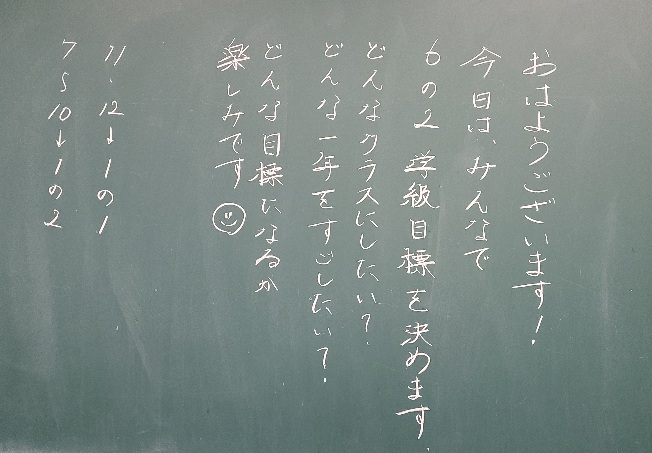 おはようございます!
今日は、みんなで
6の2 学級目標を決めます.
どんなクラスにしたい?.
どんな一年をすごしたい?.
どんな目標になるか
楽しみです
11・12→1の1
7〜10→1の2